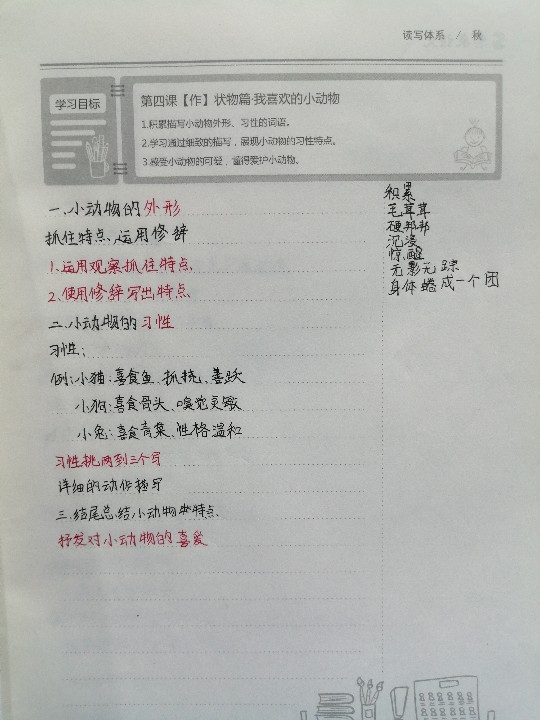 读写体系 / 秋
学习目标
第四课【作】状物篇·我喜欢的小动物
1.积累描写小动物外形、习性的词语。
2.学习通过细致的描写，展现小动物的习性特点。
3.感受小动物的可爱，懂得爱护小动物。
一、小动物的外形
抓住特点、运用修辞
1.运用观察抓住特点
2.使用修辞写出特点
二、小动物的习性
习性：
例：小猫：喜食鱼、抓挠、善跃
小狗：喜食骨头、嗅觉灵敏
小兔：喜食青菜、性格温和
习性挑两到三个写
详细的动作描写
三、结尾总结小动物特点
抒发对小动物的喜爱
积累
毛茸茸
硬邦邦
沉浸
惊醒
无影无踪
身体蜷成一个团